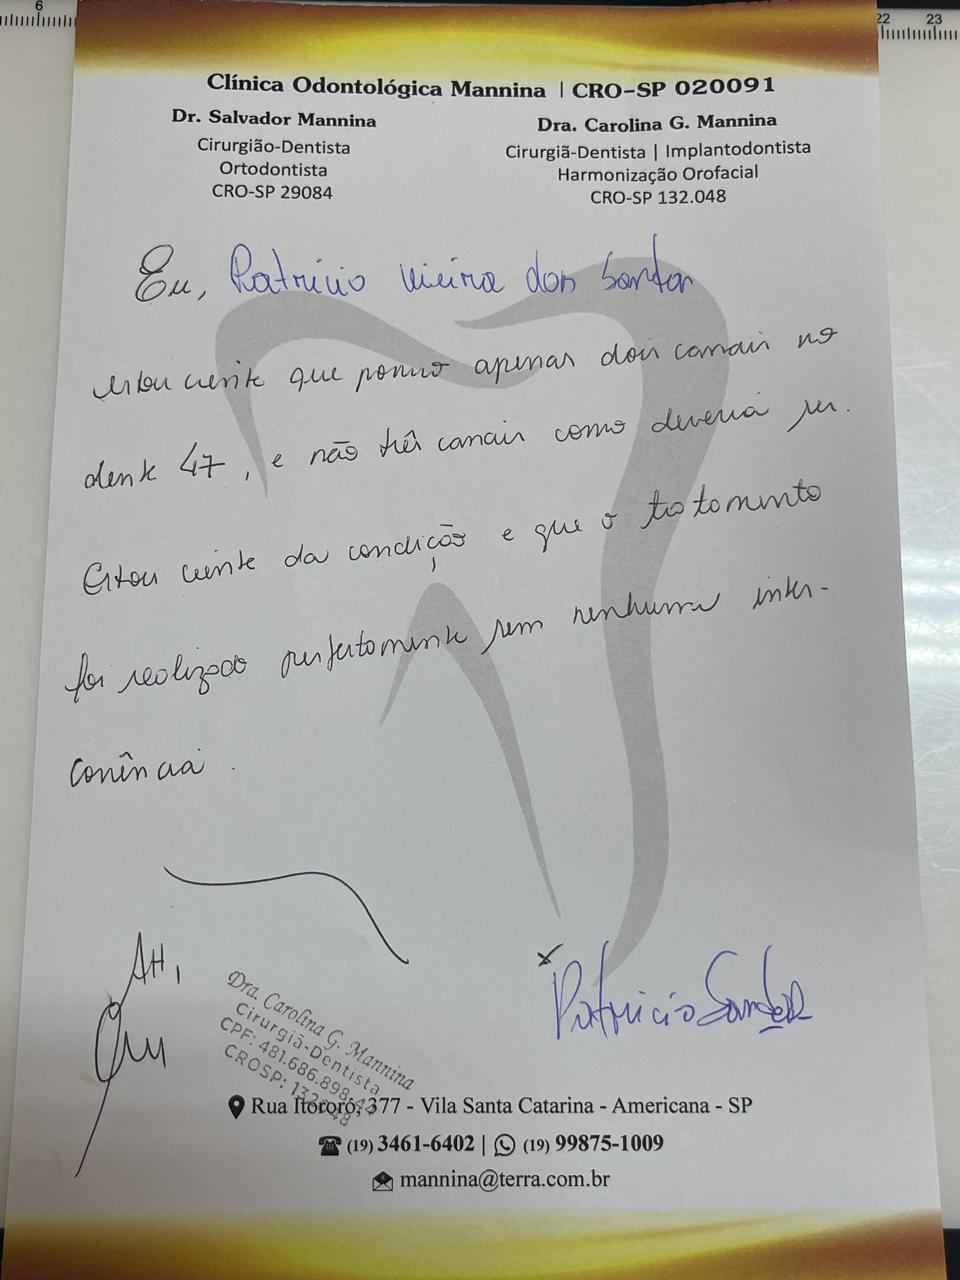 6
22 23
Clínica Odontológica Mannina | CRO-SP 020091
Dr. Salvador Mannina
Cirurgião-Dentista
Ortodontista
CRO-SP 29084
Dra. Carolina G. Mannina
Cirurgiã-Dentista | Implantodontista
Harmonização Orofacial
CRO-SP 132.048
Eu, Patricio Vieira dos Santos
estou ciente que possuo apenas dois canais no
dente 47, e não três canais como deveria ser.
Estou ciente da condição e que o tratamento
foi realizado perfeitamente sem nenhuma inter-
conência.
Att,
Dra. Carolina G. Mannina
Cirurgiã-Dentista
CPF: 481.686.898
CROSP: 132048
x
Patricio Santos
Rua Itororó, 377 - Vila Santa Catarina - Americana - SP
(19) 3461-6402 | (19) 99875-1009
mannina@terra.com.br